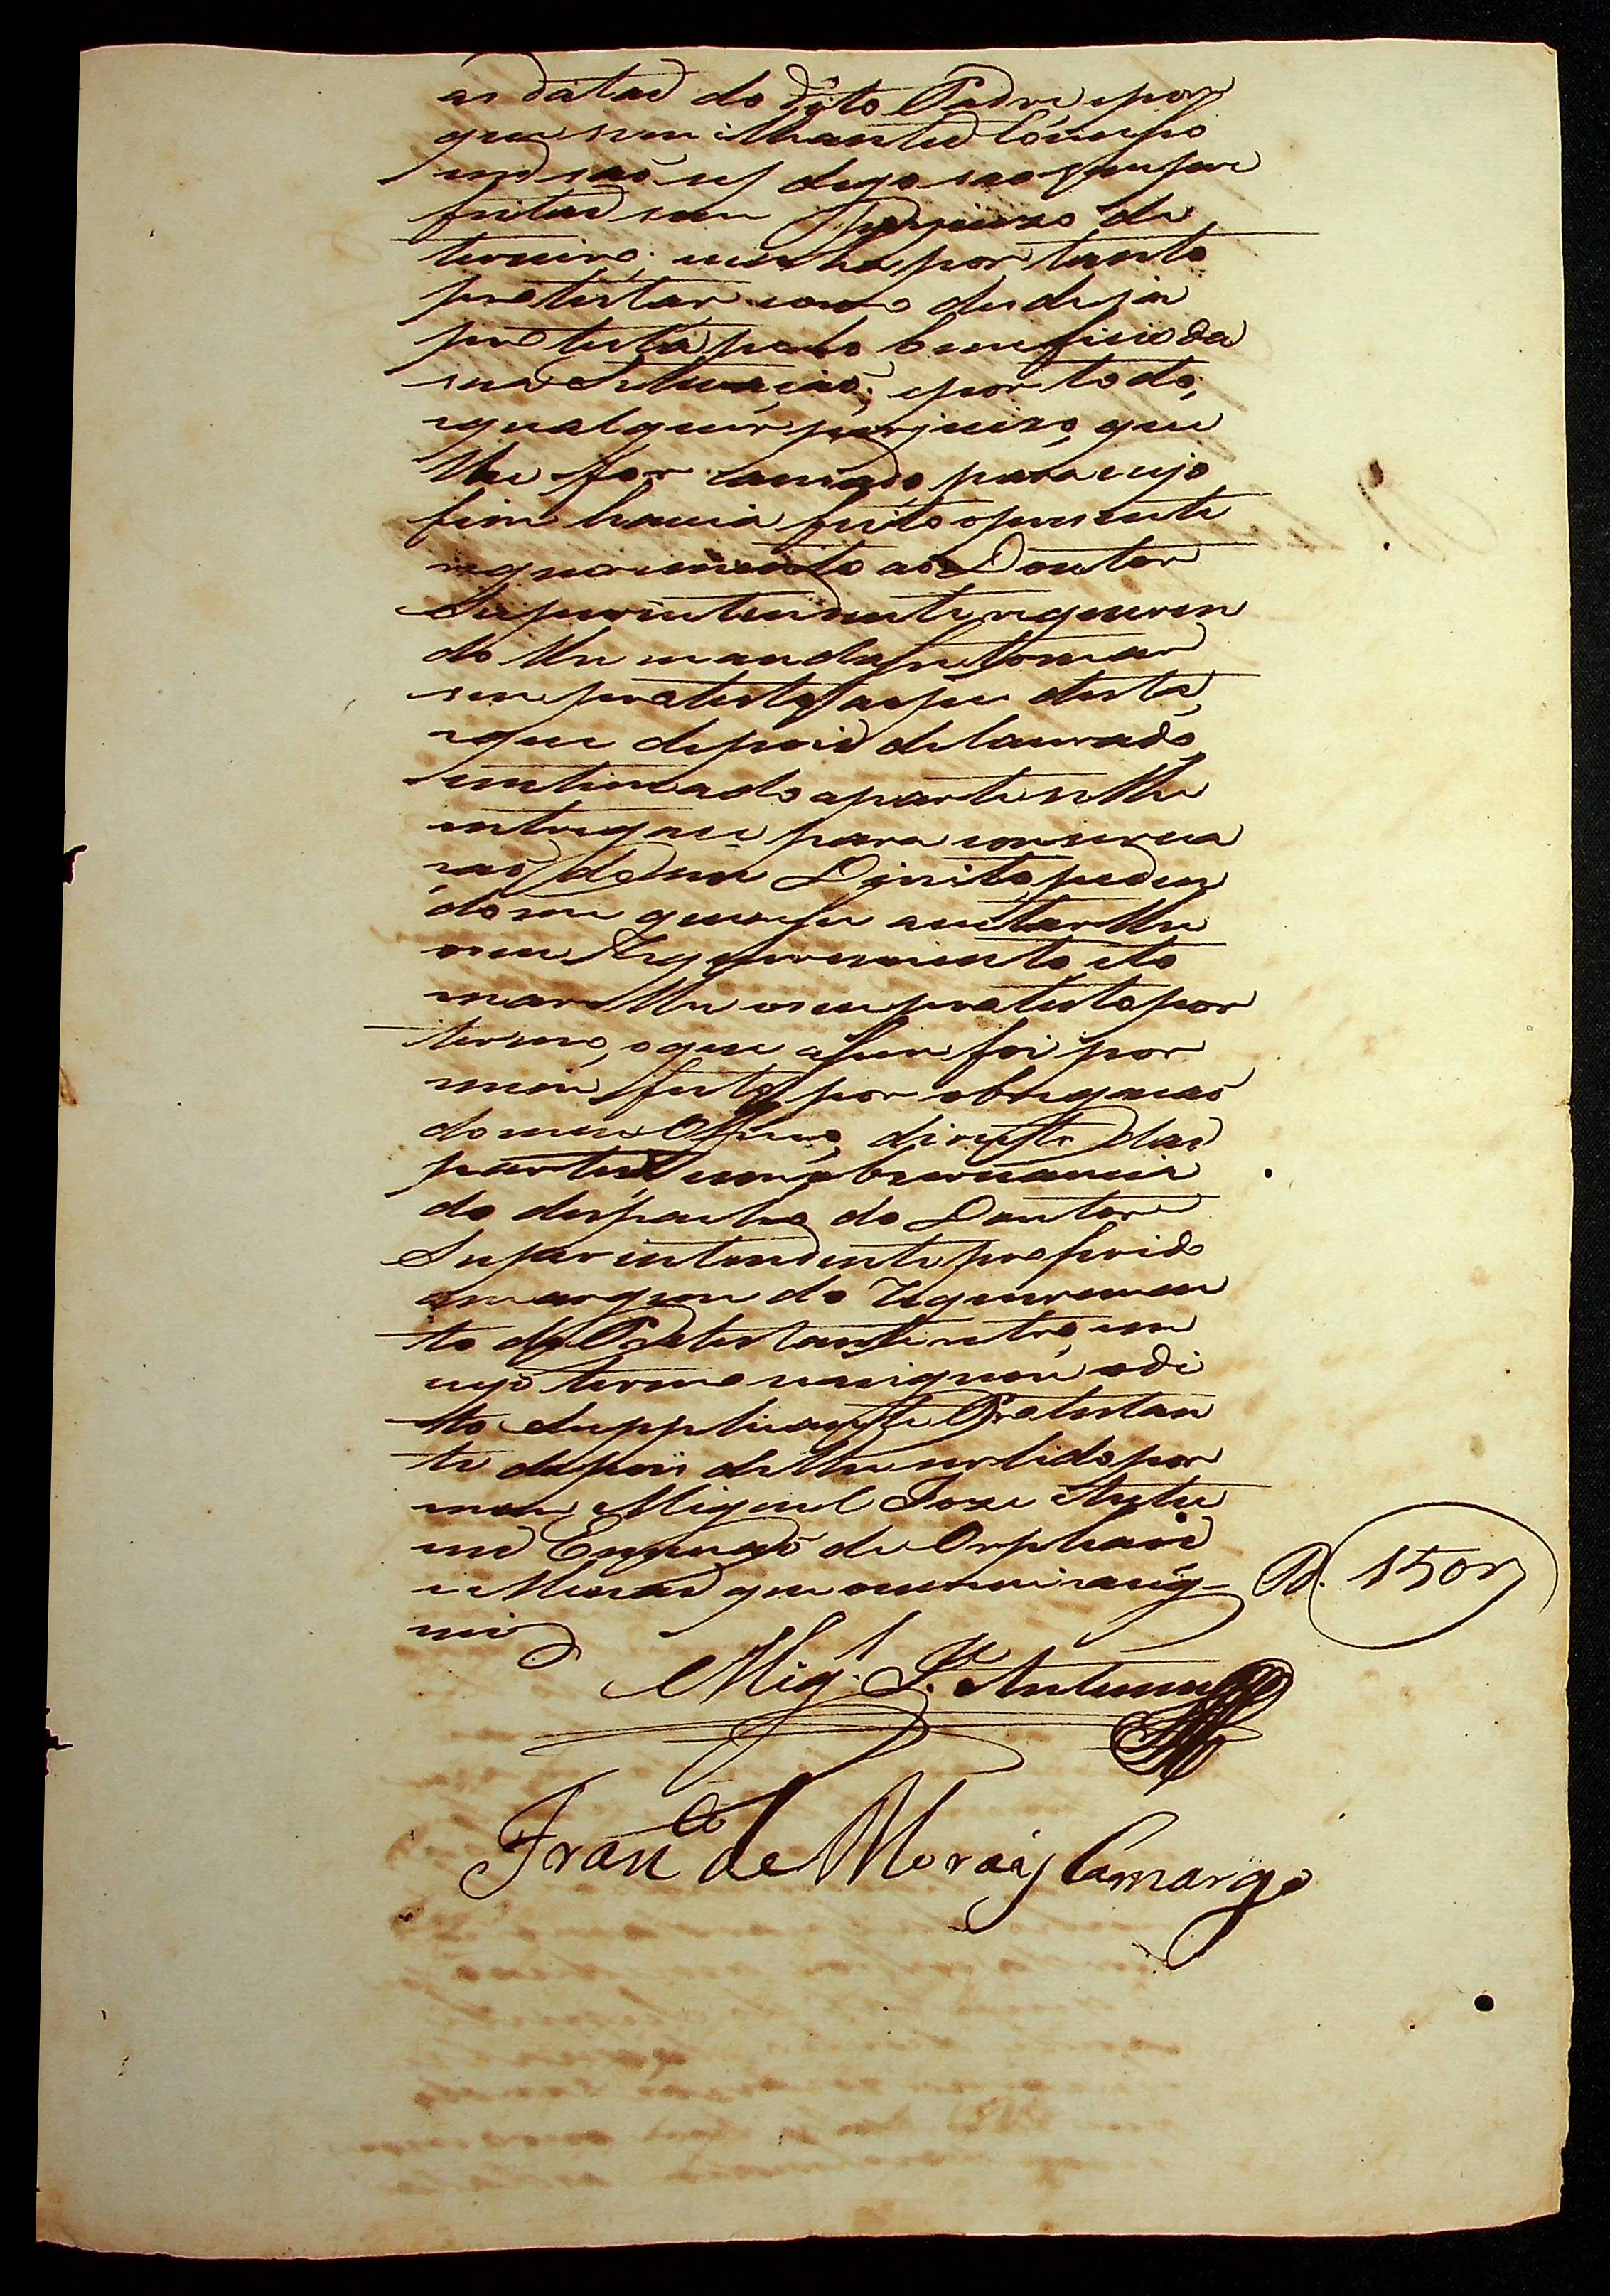 as datas do dito Padre epor
que semilhantes Conceço
ens saõ ou digo saõ sempre
feitas sem Prejuizo de
terceiro: vinha por tanto
protestar como desde ja
protesta pelo beneficio da
sua Situaçaõ, e por todo,
equalquer prejuizo, que
lhe for cauzado para cujo
fim havia feito o prezente
requerimento ao Doutor
Superintendente requeren
do lhe mandasse tomar
seu protesto ao pe desta,
e que depois de lavrado,
intimado aparte se lhe
entregace para conserva
çaõ do seu Direito, pedin
do me quizesse aceitar lhe
o seu Requerimento, eto
mar lhe o seu protesto por
termo, oque assim foi por
mim feito por obrigaçaõ
do meu Officio, direito das
partes, e em observancia
do despacho do Doutor
Superintendente proferido
amargem do Requerimen
to do Protestante retro, em
cujo termo se asignou o di
to Supplicante Protestan
te depois de lhe ser lido por
mim Miguel Joze Antu
nes Escrivaõ de Orphaos
e Minas que o escrevi e asig-
nei
Mig.l J.e Antunes
B. 150r
Fran.co de Morais Camargo